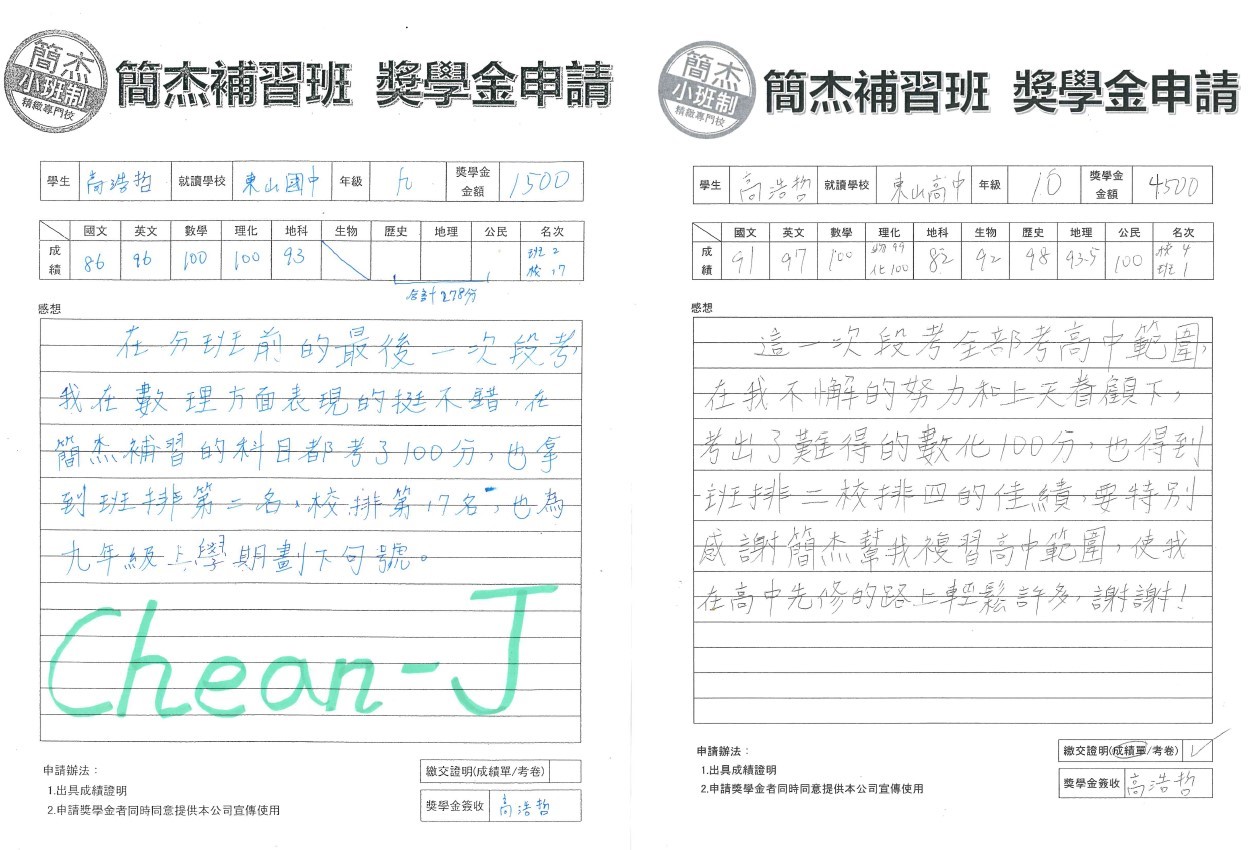 簡杰
小班制
精緻專門校
簡杰補習班 獎學金申請
學生 高浩哲 就讀學校 東山國中 年級 九 獎學金金額 1500
國文 英文 數學 理化 地科 生物 歷史 地理 公民 名次
成績 86 96 100 100 93 班2 校17
合計278分
感想
在分班前的最後一次段考,
我在數理方面表現的挺不錯,在
簡杰補習的科目都考了100分,也拿
到班排第二名,校排第17名,也為
九年級上學期劃下句號。
Chean-J
申請辦法:
1.出具成績證明
2.申請獎學金者同時同意提供本公司宣傳使用
繳交證明(成績單/考卷)
獎學金簽收 高浩哲
簡杰
小班制
精緻專門校
簡杰補習班 獎學金申請
學生 高浩哲 就讀學校 東山高中 年級 10 獎學金金額 4500
國文 英文 數學 理化 地科 生物 歷史 地理 公民 名次
成績 91 97 100 物99 化100 82 92 98 93.5 100 校4 班1
感想
這一次段考全部考高中範圍,
在我不懈的努力和上天眷顧下,
考出了難得的數化100分,也得到
班排二校排四的佳績,要特別
感謝簡杰幫我複習高中範圍,使我
在高中先修的路上輕鬆許多,謝謝!
申請辦法:
1.出具成績證明
2.申請獎學金者同時同意提供本公司宣傳使用
繳交證明(成績單/考卷) ✓
獎學金簽收 高浩哲